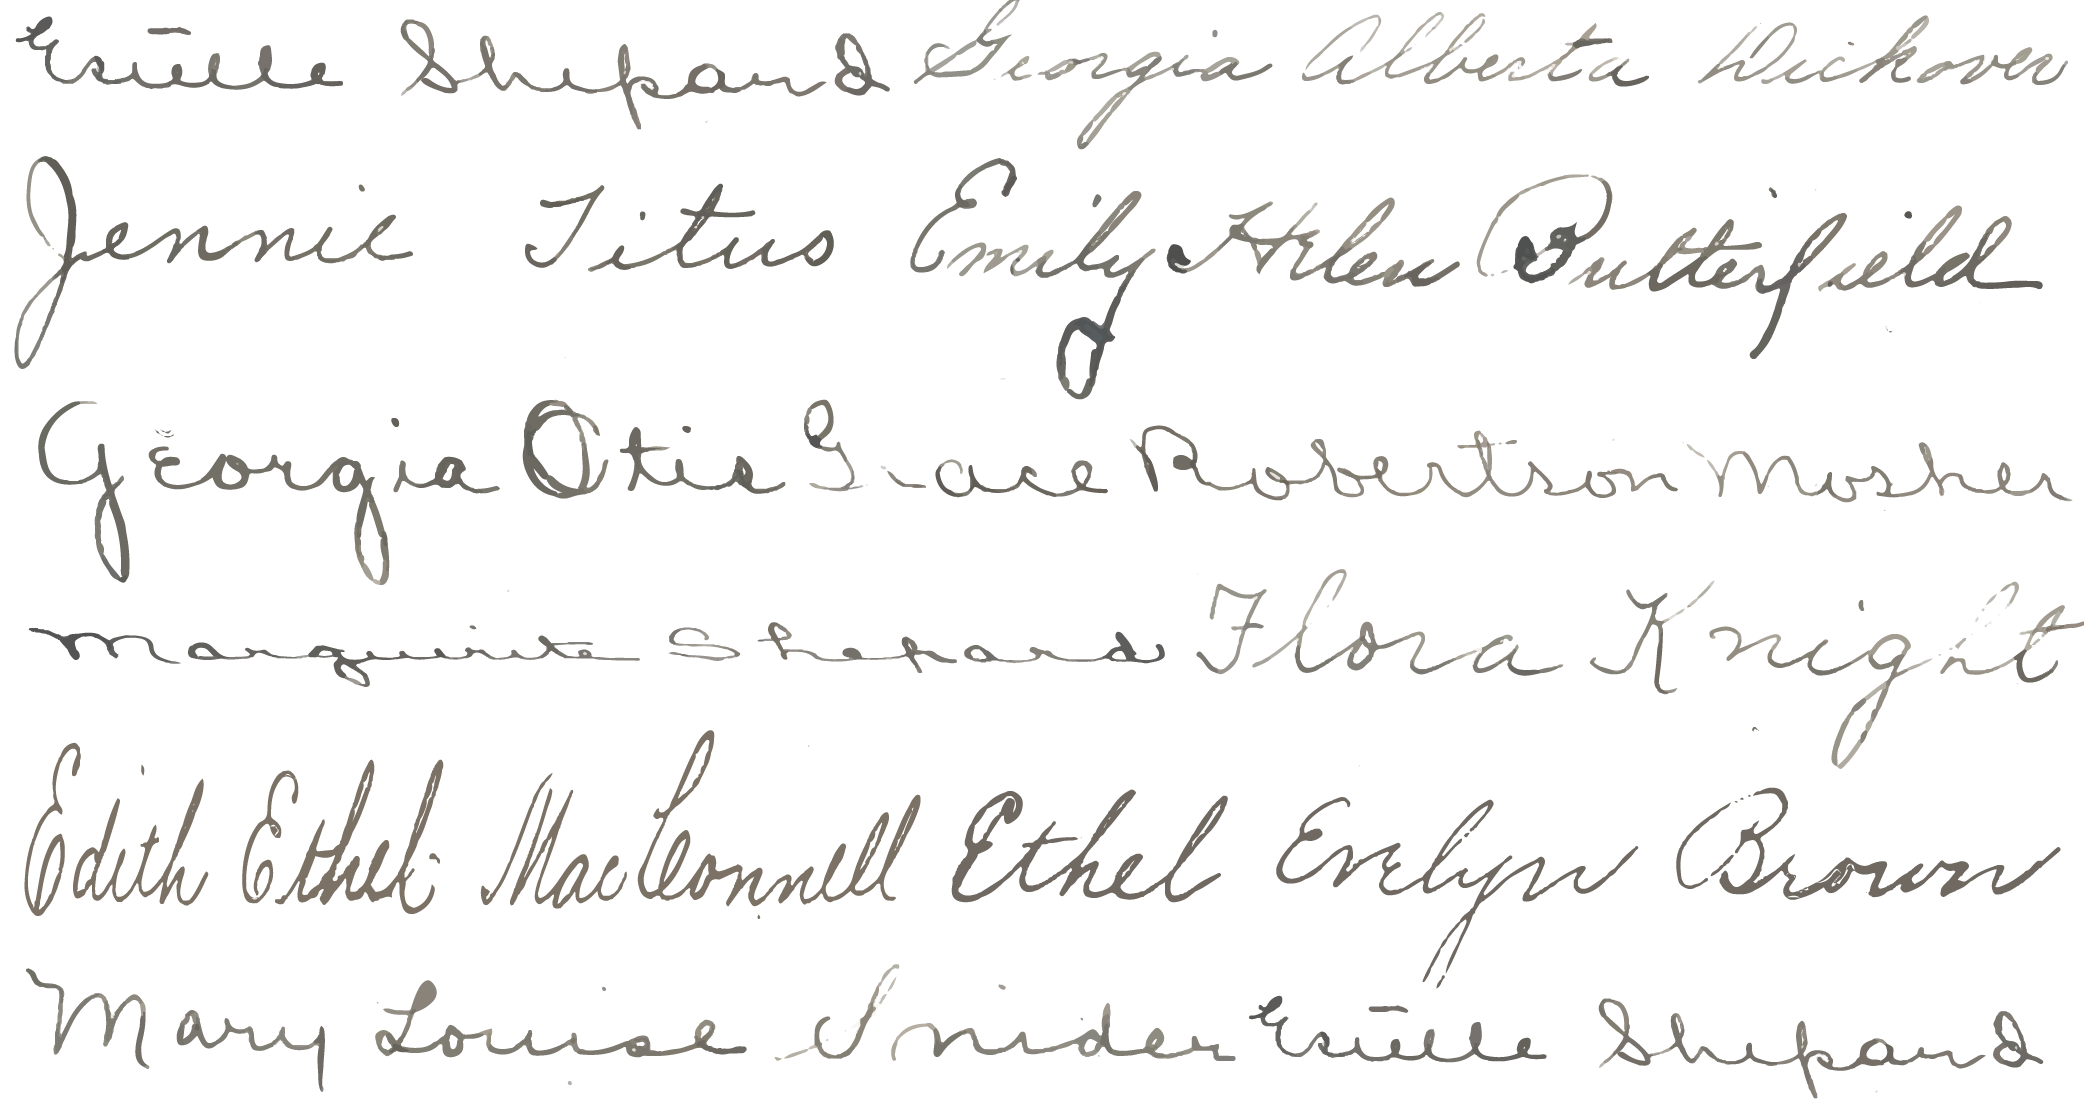 Estelle Shepard Georgia Alberta Dickover
Jennie Titus Emily Helen Butterfield
Georgia Otis Grace Robertson Mosher
Marguirite Shepard Flora Knight
Edith Ethel MacConnell Ethel Evelyn Brown
Mary Louise Snider Estelle Shepard